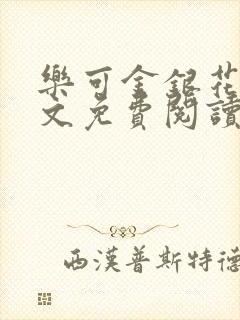 樂可金銀花
文免費閱讀
西漢普斯特德